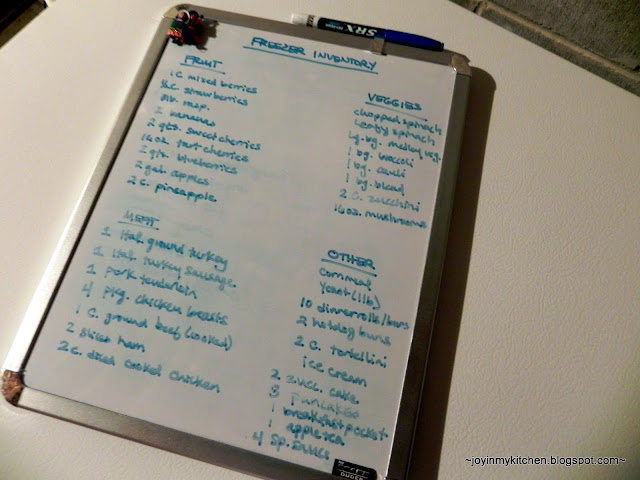 FREEZER INVENTORY
FRUIT
1 C. mixed berries
strawberries
2 bananas
2 qts. sweet cherries
16 oz. tart cherries
2 qts. blueberries
2 gal. apples
2 c. pineapple
VEGGIES
chopped spinach
leafy spinach
1 bg. broccoli
1 bg. cauli
1 bg. blend
2 C. zucchini
16 oz. mushrooms
MEAT
1 Ital. ground turkey
1 Ital. turkey sausage
1 pork tenderloin
4 pkg. chicken breasts
1 C. ground beef (cooked)
2 sliced ham
2 c. diced cooked chicken
OTHER
cornmeal
yeast (1 lb)
10 dinner rolls/buns
2 hotdog buns
2 C. tortellini
ice cream
2 zucc. cake
8 pancakes
1 breakfast pocket
1
4 sp. sauce
~joyinmykitchen.blogspot.com~